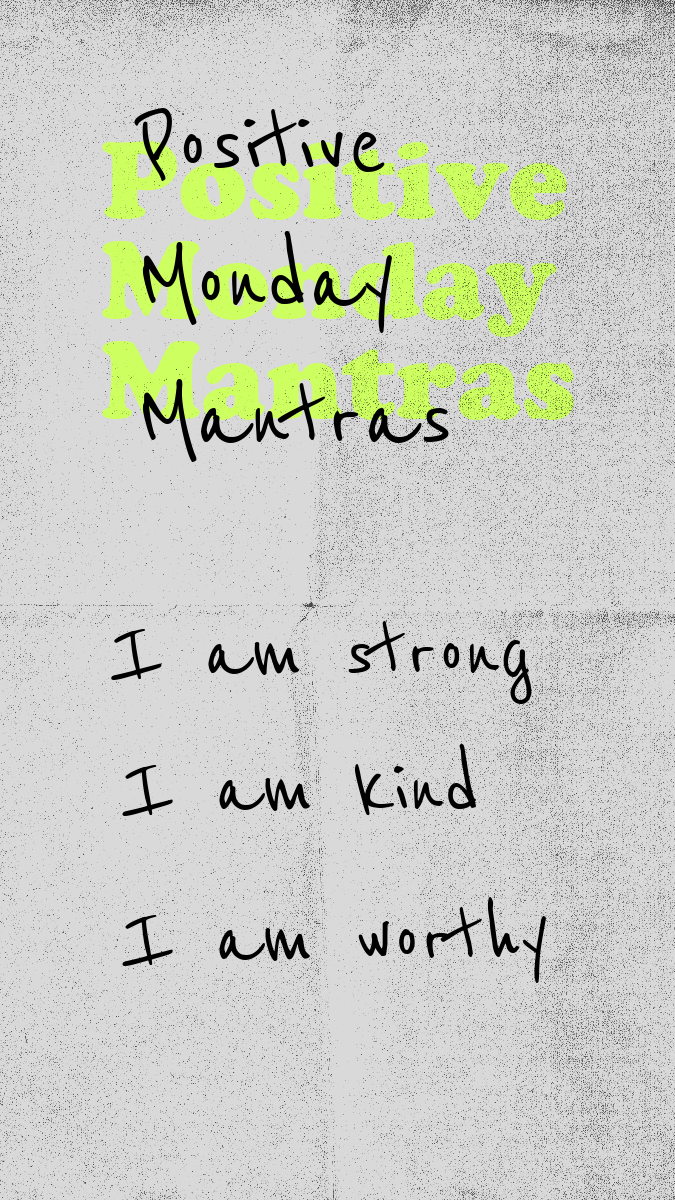 Positive
Positive
Monday
Monday
Mantras
Mantras
I am strong
I am kind
I am worthy